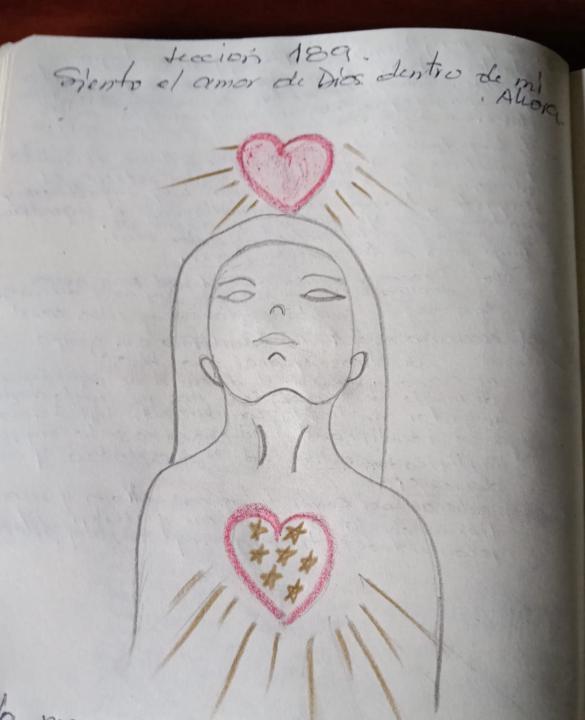 Lección 189.
Siento el amor de Dios dentro de mi
. Ahora